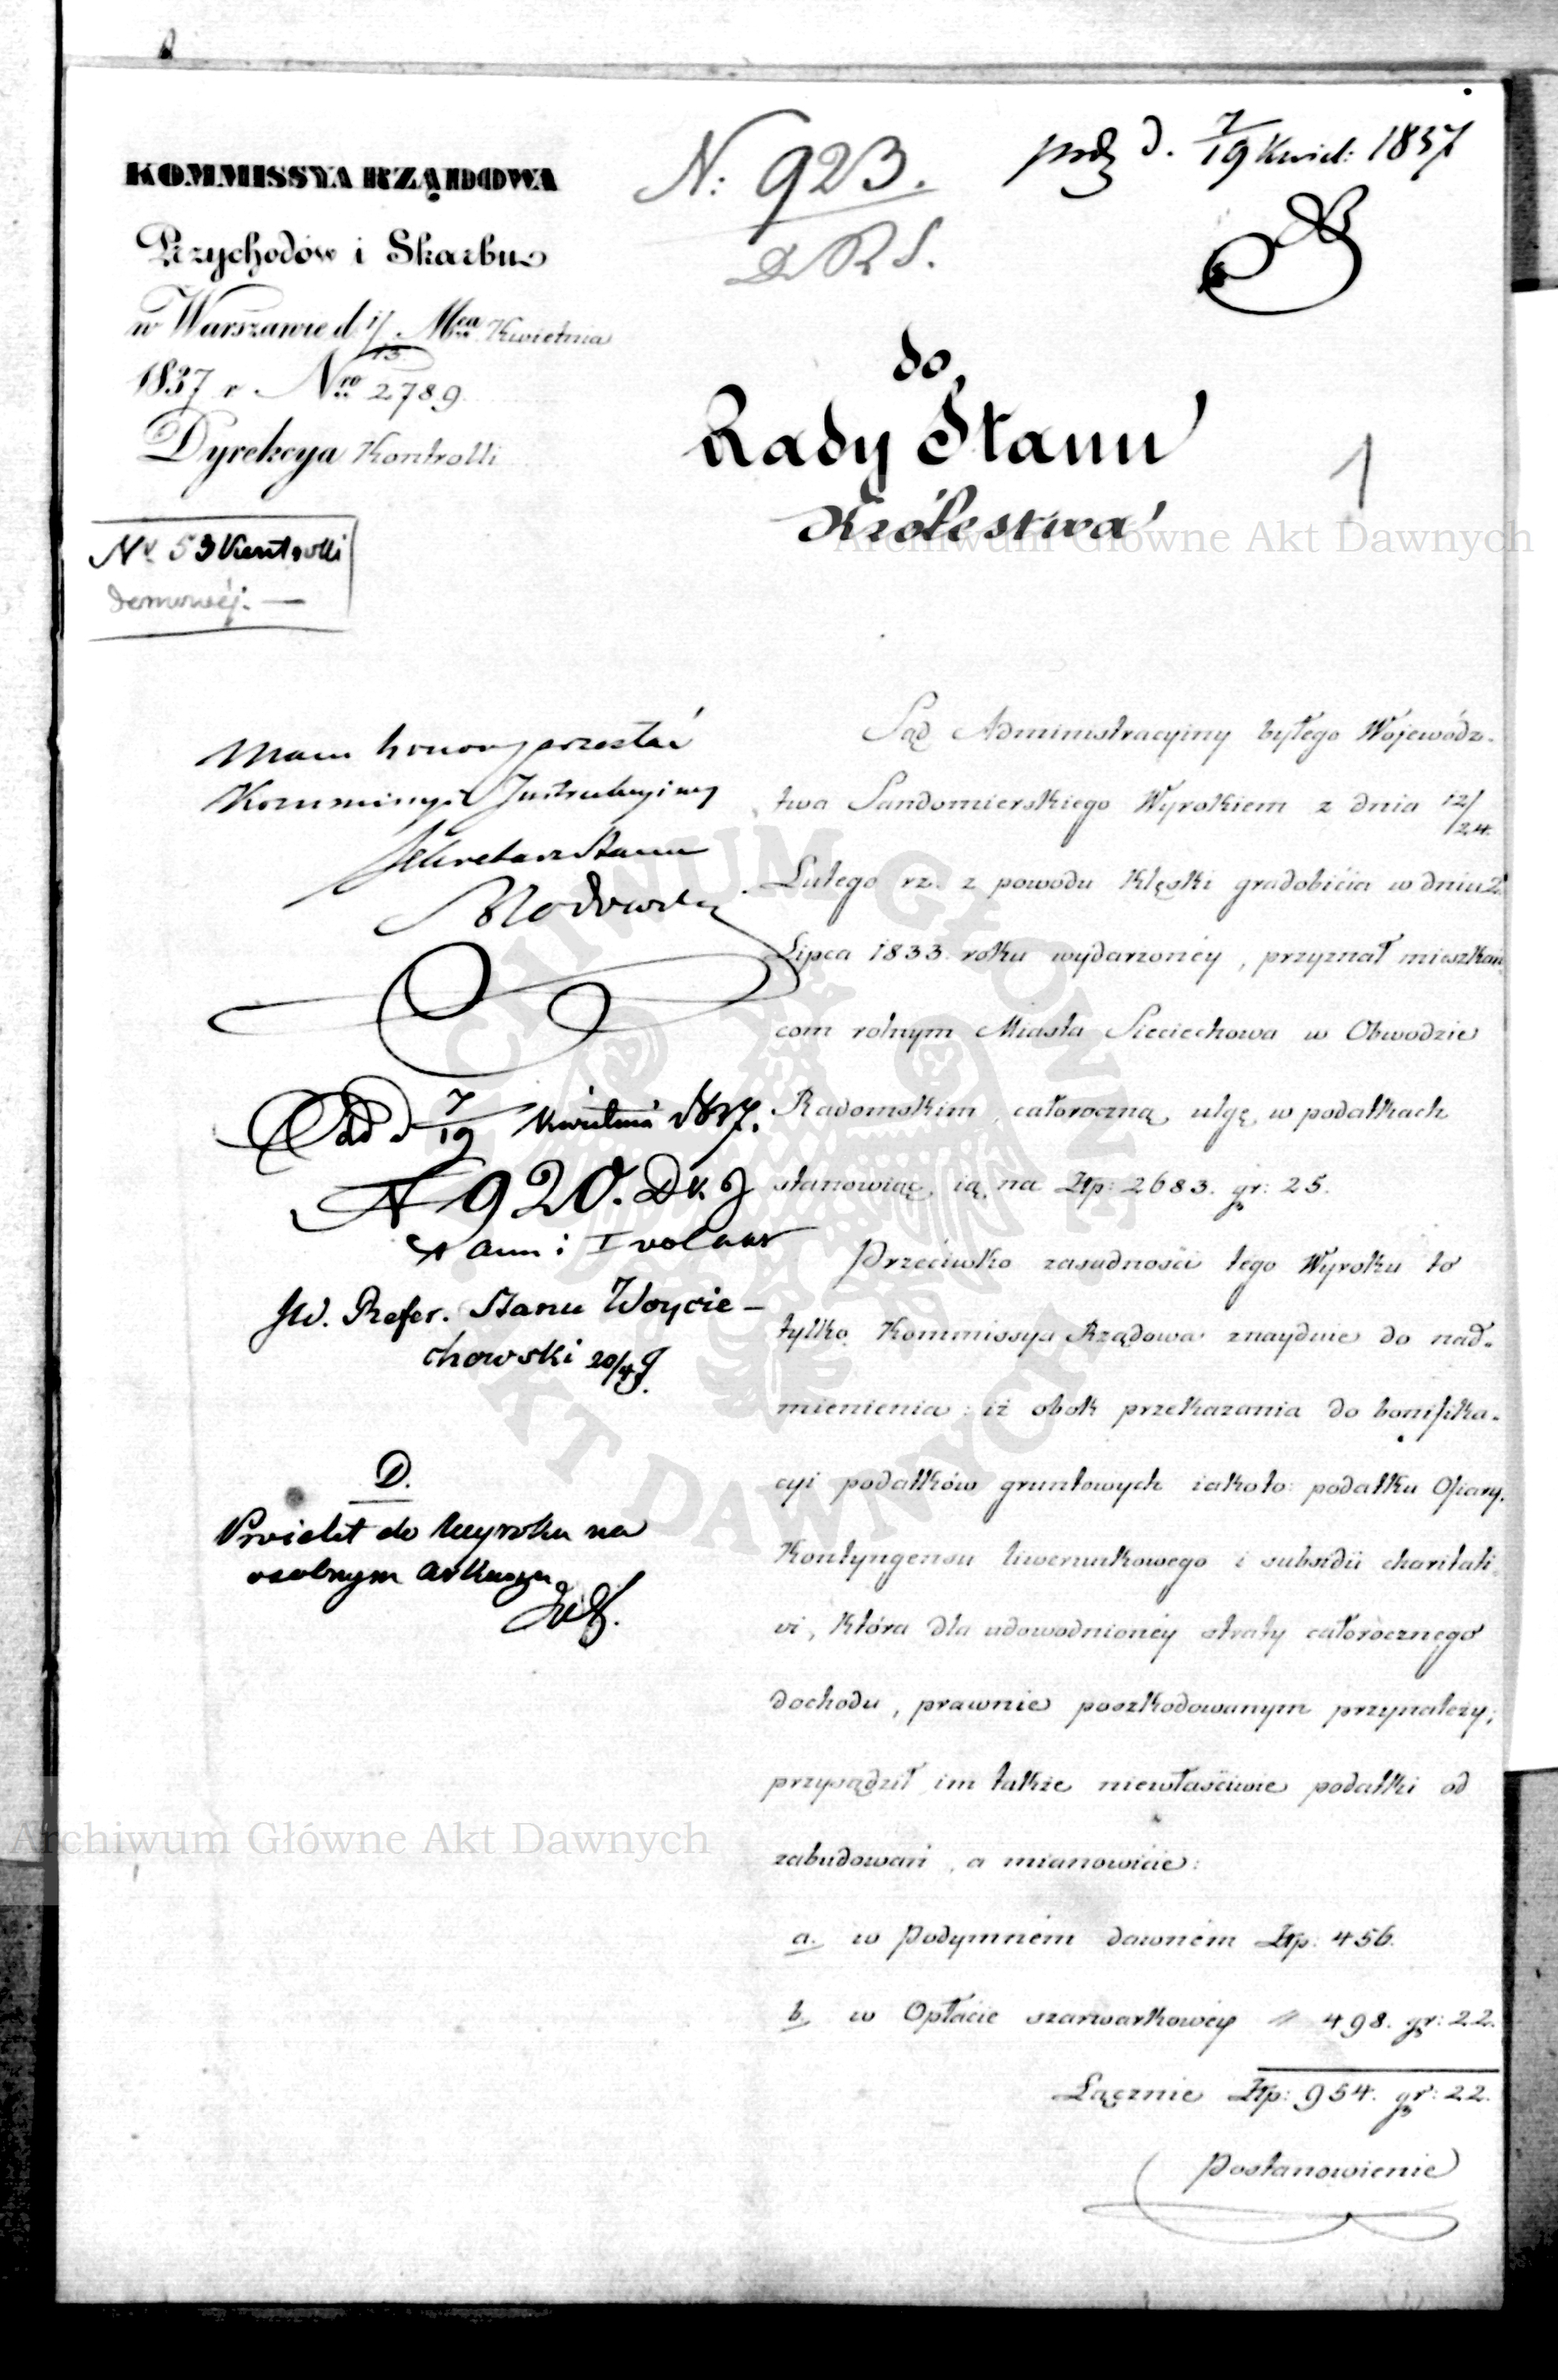 KOMMISSYA RZĄDOWA
Przychodów i Skarbu
w Warszawie d. 1/13 Mca Kwietnia
1837 r. Nro 2789
Dyrekcya Kontrolli
N: 923.
D R S.
d. 7/19 Kwiet: 1837
do
Rady Stanu
Królestwa
1
Nr 53 Kontrolli
domowéj. —
Mam honor przesłać
Kommissyi Instrukcyiney
Sekretarz Stanu
d 7/19 Kwietnia 1837.
N 920.
JW. Refer. Stanu Woycie-
chowski 20/4
D.
Proiekt do Wyroku na
osobnym arkuszu
Sąd Administracyiny byłego Wojewódz-
twa Sandomierskiego Wyrokiem z dnia 12/24.
Lutego rz. z powodu klęski gradobicia w dniu 2.
Lipca 1833. roku wydarzonéy, przyznał mieszkań
com rolnym Miasta Sieciechowa w Obwodzie
Radomskim, całoroczną ulgę w podatkach
stanowiąc ią na Złp: 2683. gr: 25.
Przeciwko zasadności tego Wyroku to
tylko Kommissya Rządowa znayduie do nad-
mienienia: iż obok przekazania do bonifika-
cyi podatków gruntowych iakoto: podatku Ofiary,
Kontyngensu liwerunkowego i subsidii charitati
vi, która dla udowodnionéy straty całorocznego
dochodu, prawnie poszkodowanym przynależy;
przysądził im także niewłaściwie podatki od
zabudowań, a mianowicie:
a. w Podymném dawném Złp: 456.
b. w Opłacie szarwarkowéy " 498. gr: 22.
Łącznie Złp: 954. gr: 22.
Postanowienie
Archiwum Główne Akt Dawnych
Archiwum Główne Akt Dawnych
ARCHIWUM GŁÓWNE AKT DAWNYCH